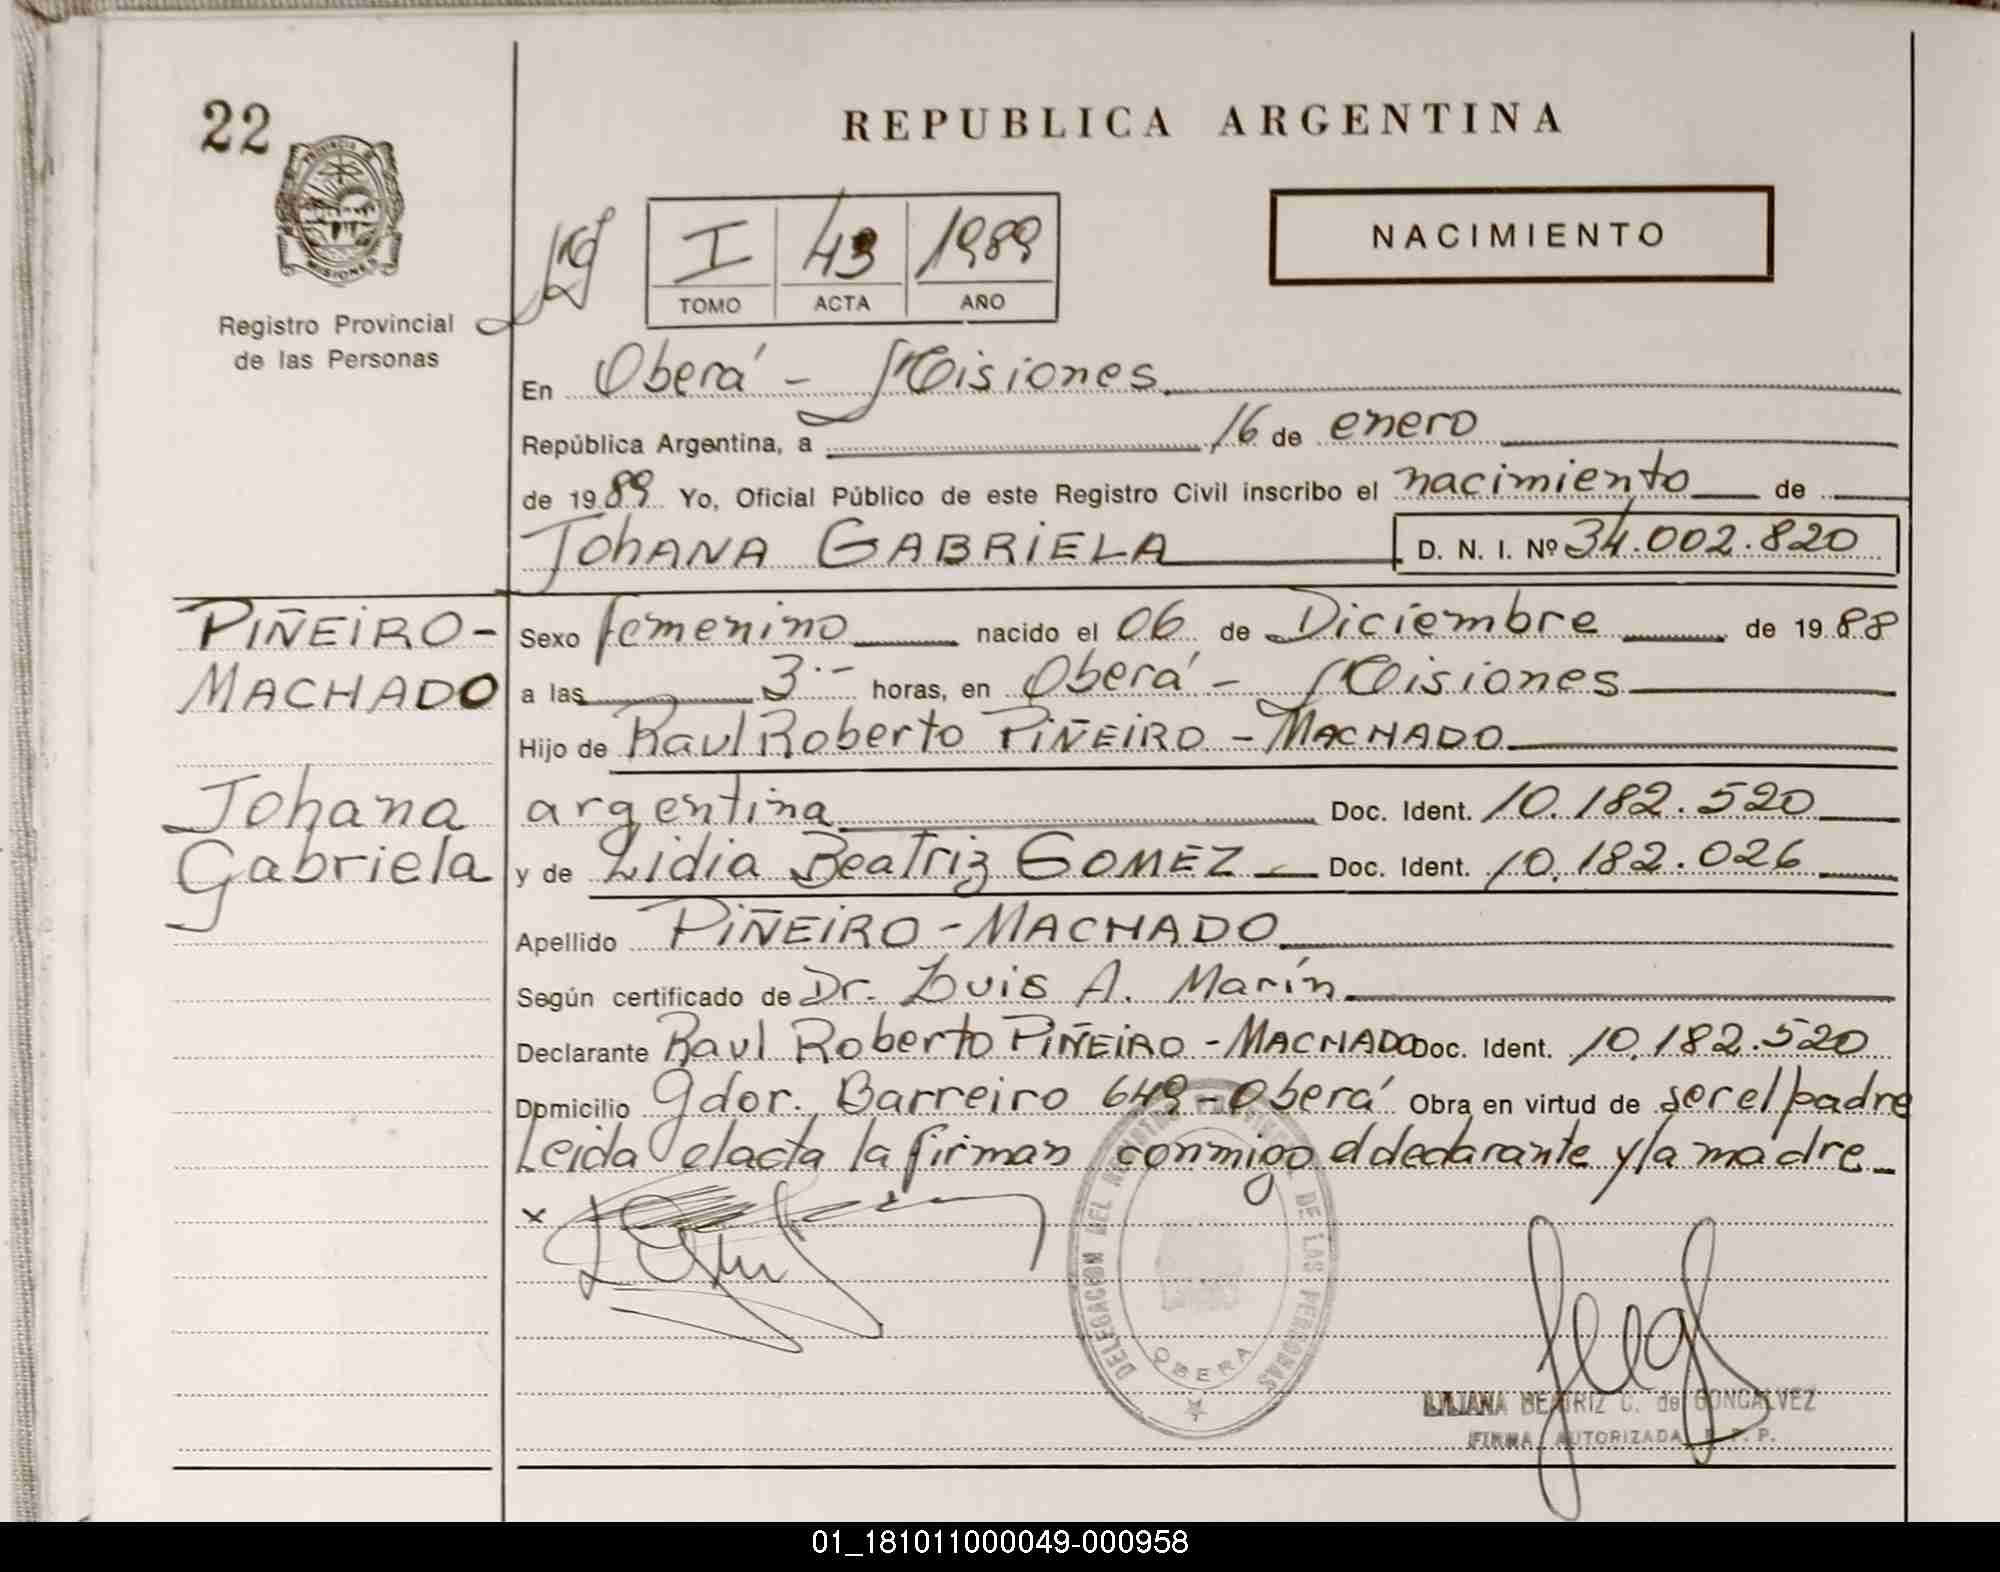 22
REPUBLICA ARGENTINA
PROVINCIA DE
MISIONES
Registro Provincial
de las Personas
I 43 1989
TOMO ACTA AÑO
NACIMIENTO
En Oberá - Misiones
República Argentina, a 16 de enero
de 1989 Yo, Oficial Público de este Registro Civil inscribo el nacimiento de
JOhANA GABRiELA D. N. I. Nº 34.002.820
PIÑEiRO-
MACHADO
Johana
Gabriela
Sexo femenino nacido el 06 de Diciembre de 1988
a las 3.- horas, en Oberá - Misiones
Hijo de Raul Roberto PIÑEiRO - MACHADO
argentina Doc. Ident. 10.182.520
y de Lidia Beatriz GOMEZ Doc. Ident. 10.182.026
Apellido PIÑEiRO - MACHADO
Según certificado de Dr. Luis A. Marín
Declarante Raul Roberto PIÑEiRO - MACHADO Doc. Ident. 10.182.520
Domicilio Gdor. Barreiro 649 - Oberá Obra en virtud de ser el padre
Leida el acta la firman conmigo el declarante y la madre
x
DELEGACION DEL REGISTRO PROVINCIAL DE LAS PERSONAS
OBERA
LILIANA BEATRIZ C. de GONCALVEZ
FIRMA AUTORIZADA R. P. P.
01_181011000049-000958